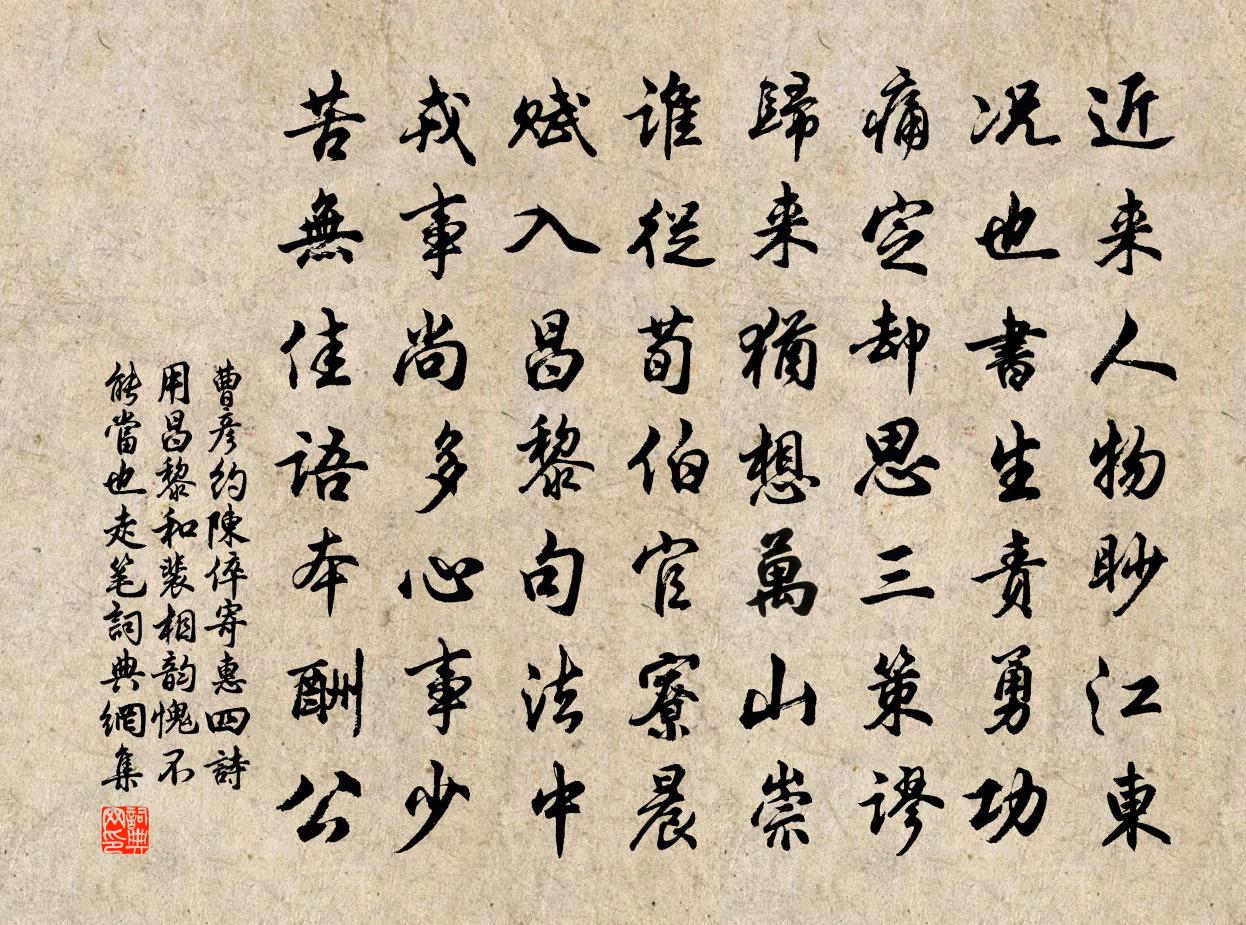 近来人物眇江東
况也書生責勇功
痛定却思三策謬
歸来猶想萬山崇
誰從荀伯官寮晨
賦入昌黎句法中
戎事尚多心事少
苦無佳語本酬公
曹彦約陳倅寄惠四詩
用昌黎和裴相韵愧不
能當也走笔詞典網集
詞典网印